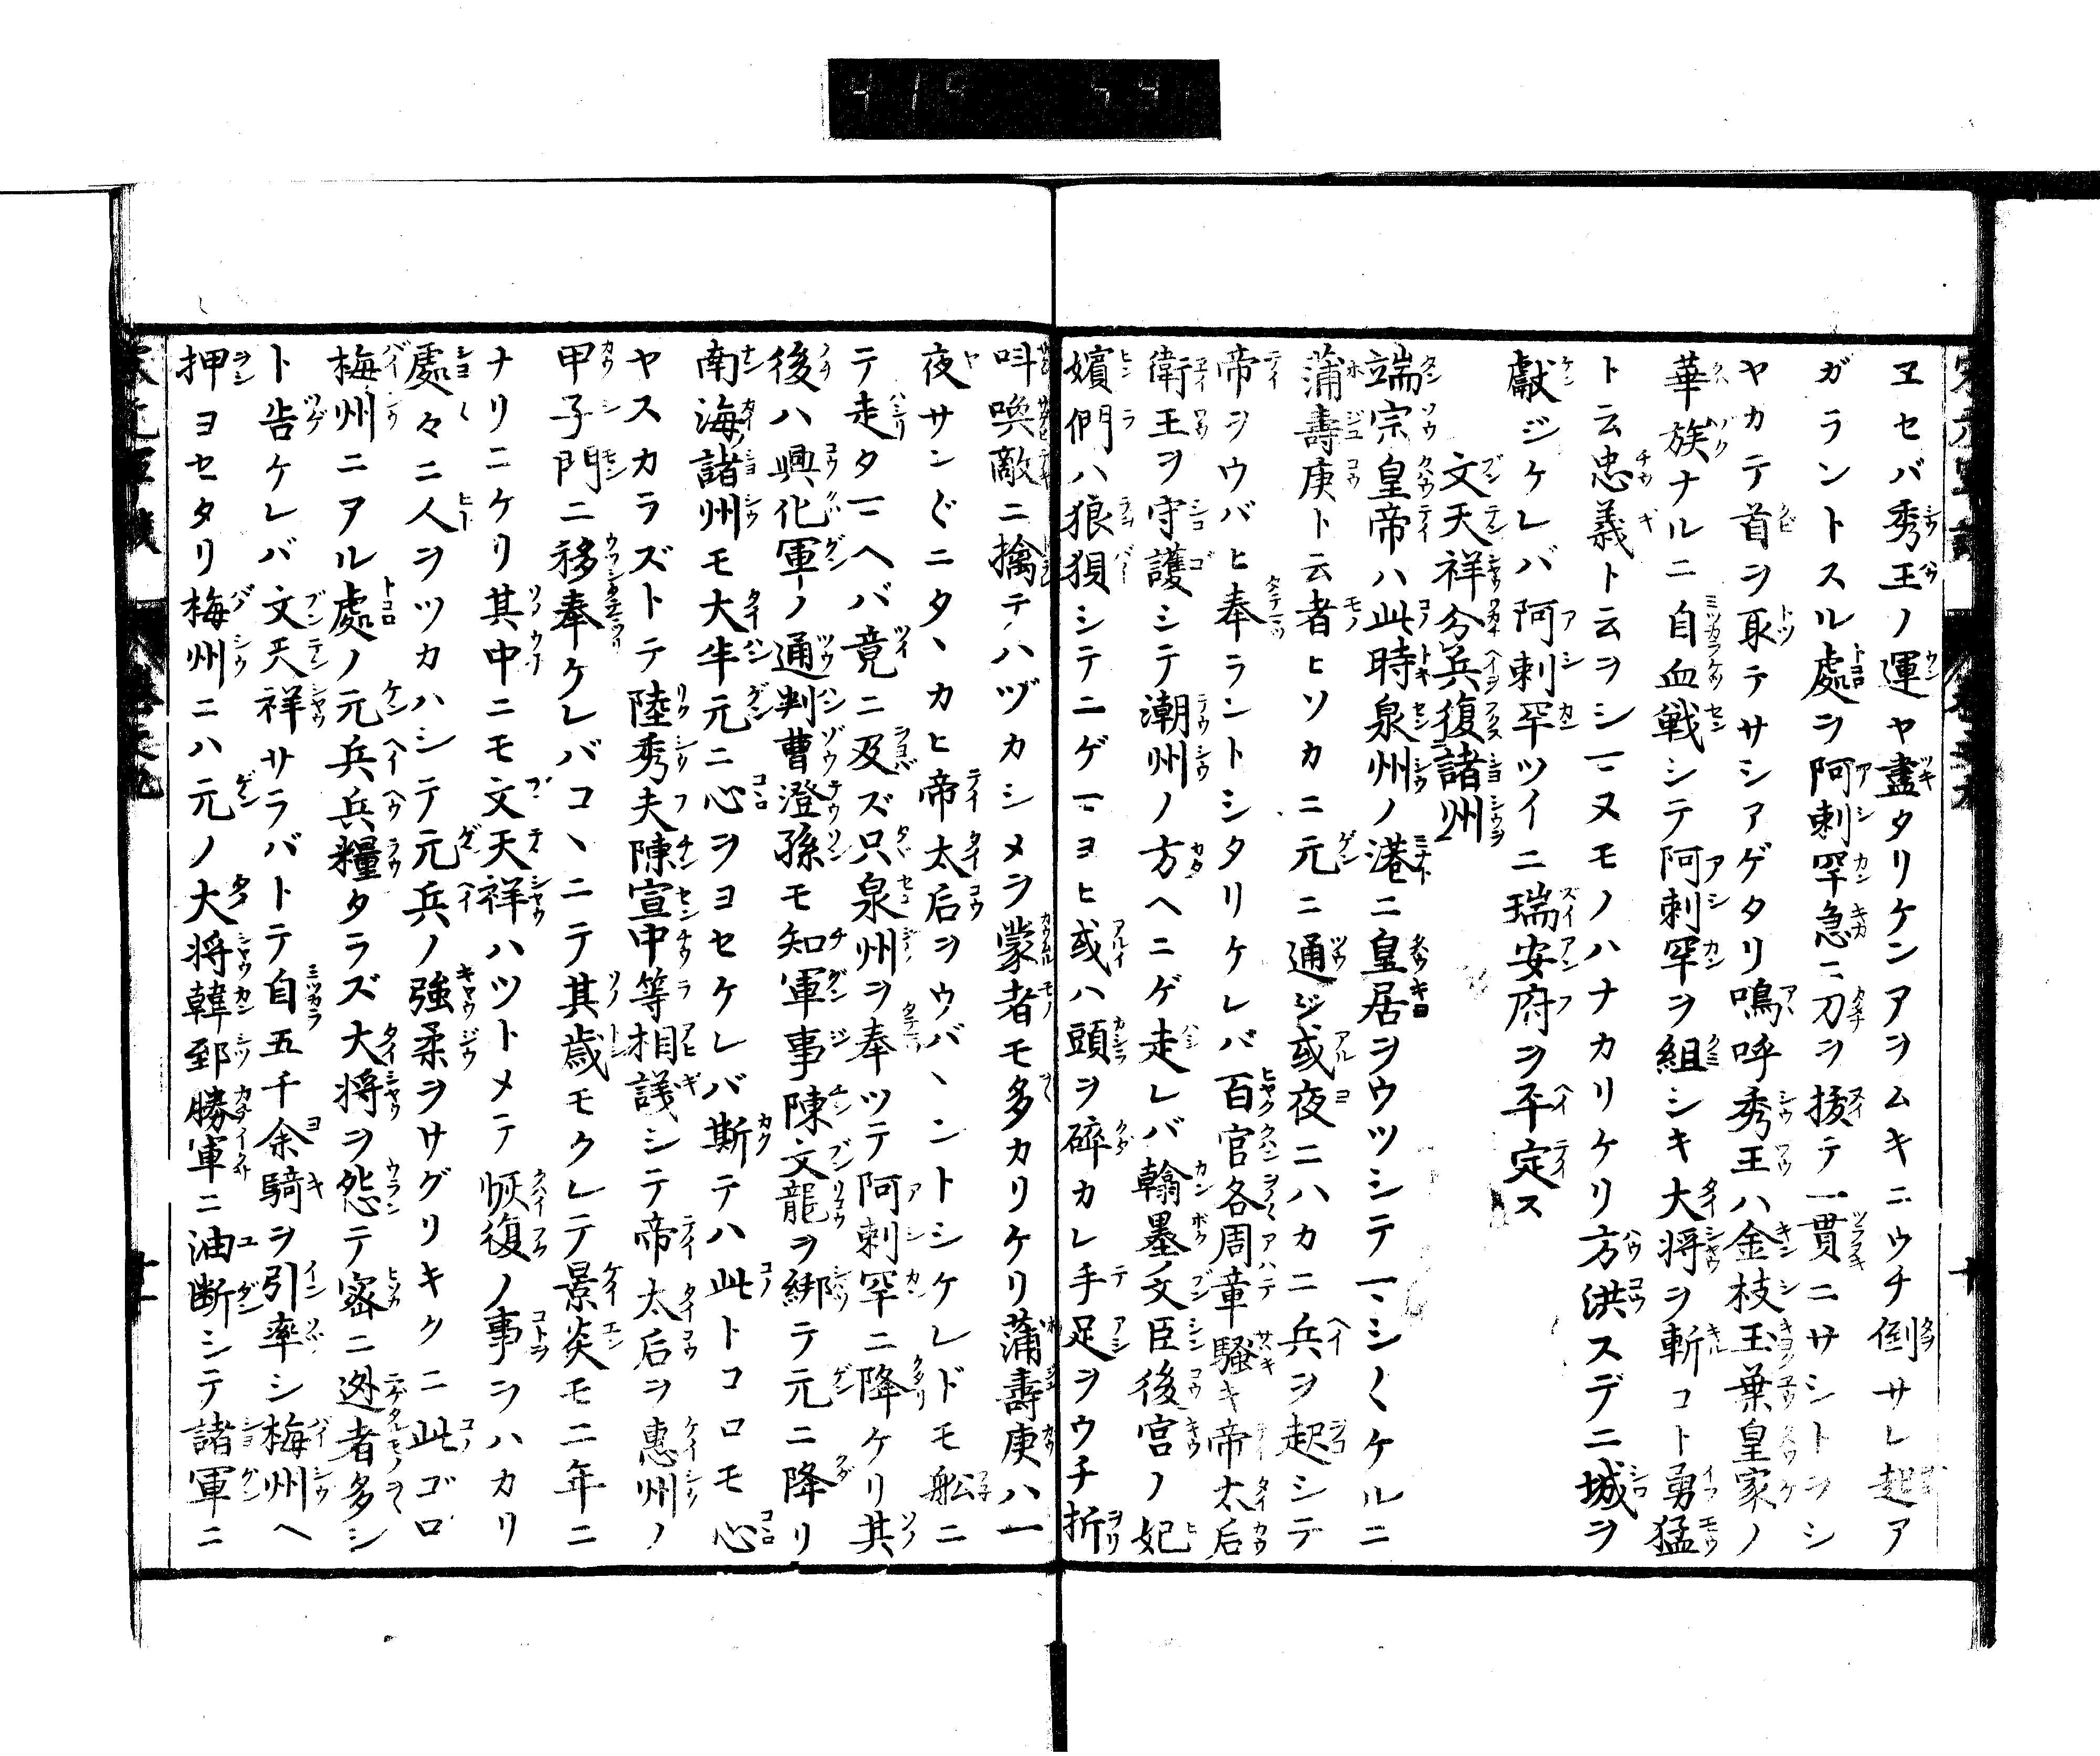 ヱセバ秀王ノ運ヤ盡タリケンアヲムキニウチ倒サレ起ア
ガラントスル處ヲ阿剌罕急ニ刀ヲ拔テ一貫ニサシトヲシ
ヤカテ首ヲ取テサシアゲタリ鳴呼秀王ハ金枝玉葉皇家ノ
華族ナルニ自血戦シテ阿剌罕ヲ組シキ大将ヲ斬コト勇猛
ト云忠義ト云ヲシヿヌモノハナカリケリ方洪スデニ城ヲ
獻ジケレバ阿剌罕ツイニ瑞安府ヲ平定ス
文天祥分兵復諸州
端宗皇帝ハ此時泉州ノ港ニ皇居ヲウツシテヿシ〱ケルニ
蒲壽庚ト云者ヒソカニ元ニ通ジ或夜ニハカニ兵ヲ起シテ
帝ヲウバヒ奉ラントシタリケレバ百官各周章騒キ帝太后
衛王ヲ守護シテ潮州ノ方ヘニゲ走レバ翰墨ノ文臣後宮ノ妃
嬪們ハ狼狽シテニゲヿヨヒ或ハ頭ヲ碎カレ手足ヲウチ折
叫喚敵ニ擒テハヅカシメラ蒙者モ多カリケリ蒲壽庚ハ一
夜サンぐニタヽカヒ帝太后ヲウバヽントシケレドモ舩ニ
テ走タヿヘバ竟ニ及ズ只泉州ヲ奉ツテ阿剌罕ニ降ケリ其
後ハ興化軍ノ通判曹澄孫モ知軍事陳文龍ヲ綁テ元ニ降リ
南海諸州モ大半元ニ心ヲヨセケレバ斯テハ此トコロモ心
ヤスカラズトテ陸秀夫陳宣中等相議シテ帝太后ヲ惠州ノ
甲子門ニ移奉ケレバコヽニテ其歳モクレテ景炎モ二年ニ
ナリニケリ其中ニモ文天祥ハツトメテ恢復ノ事ヲハカリ
處々ニ人ヲツカハシテ元兵ノ強柔ヲサグリキクニ此ゴロ
梅州ニアル處ノ元兵兵糧タラズ大将ヲ怨テ密ニ迯者多シ
ト告ケレバ文天祥サラバトテ自五千余騎ヲ引率シ梅州ヘ
押ヨセタリ梅州ニハ元ノ大将韓郅勝軍ニ油断シテ諸軍ニ